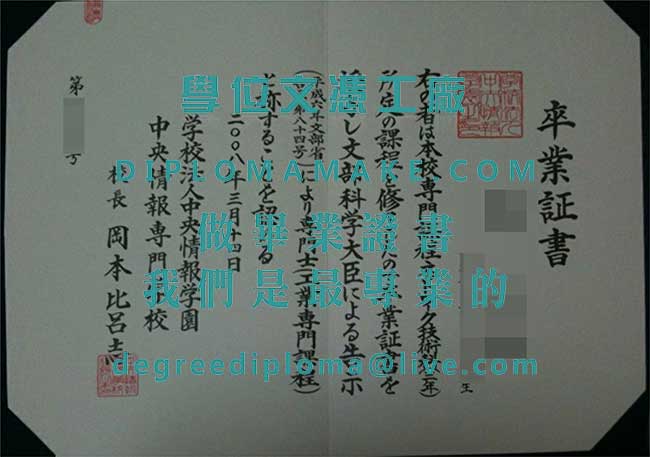 卒業証書
右の者は本校専門課程 ーク技術科(二年)
所定の課程を修 たので卒業証書を
し文部科学大臣による告示
(平成六年文部省 第八十四号)により専門士(工業専門課程)
と称することを認める
二〇〇八年三月十四日
学校法人中央情報学園
中央情報専門学校
校長 岡本比呂志
第
学位文憑工廠
DIPLOMAMAKE.COM
做畢業證書
我們是最專業的
degreediploma@live.com